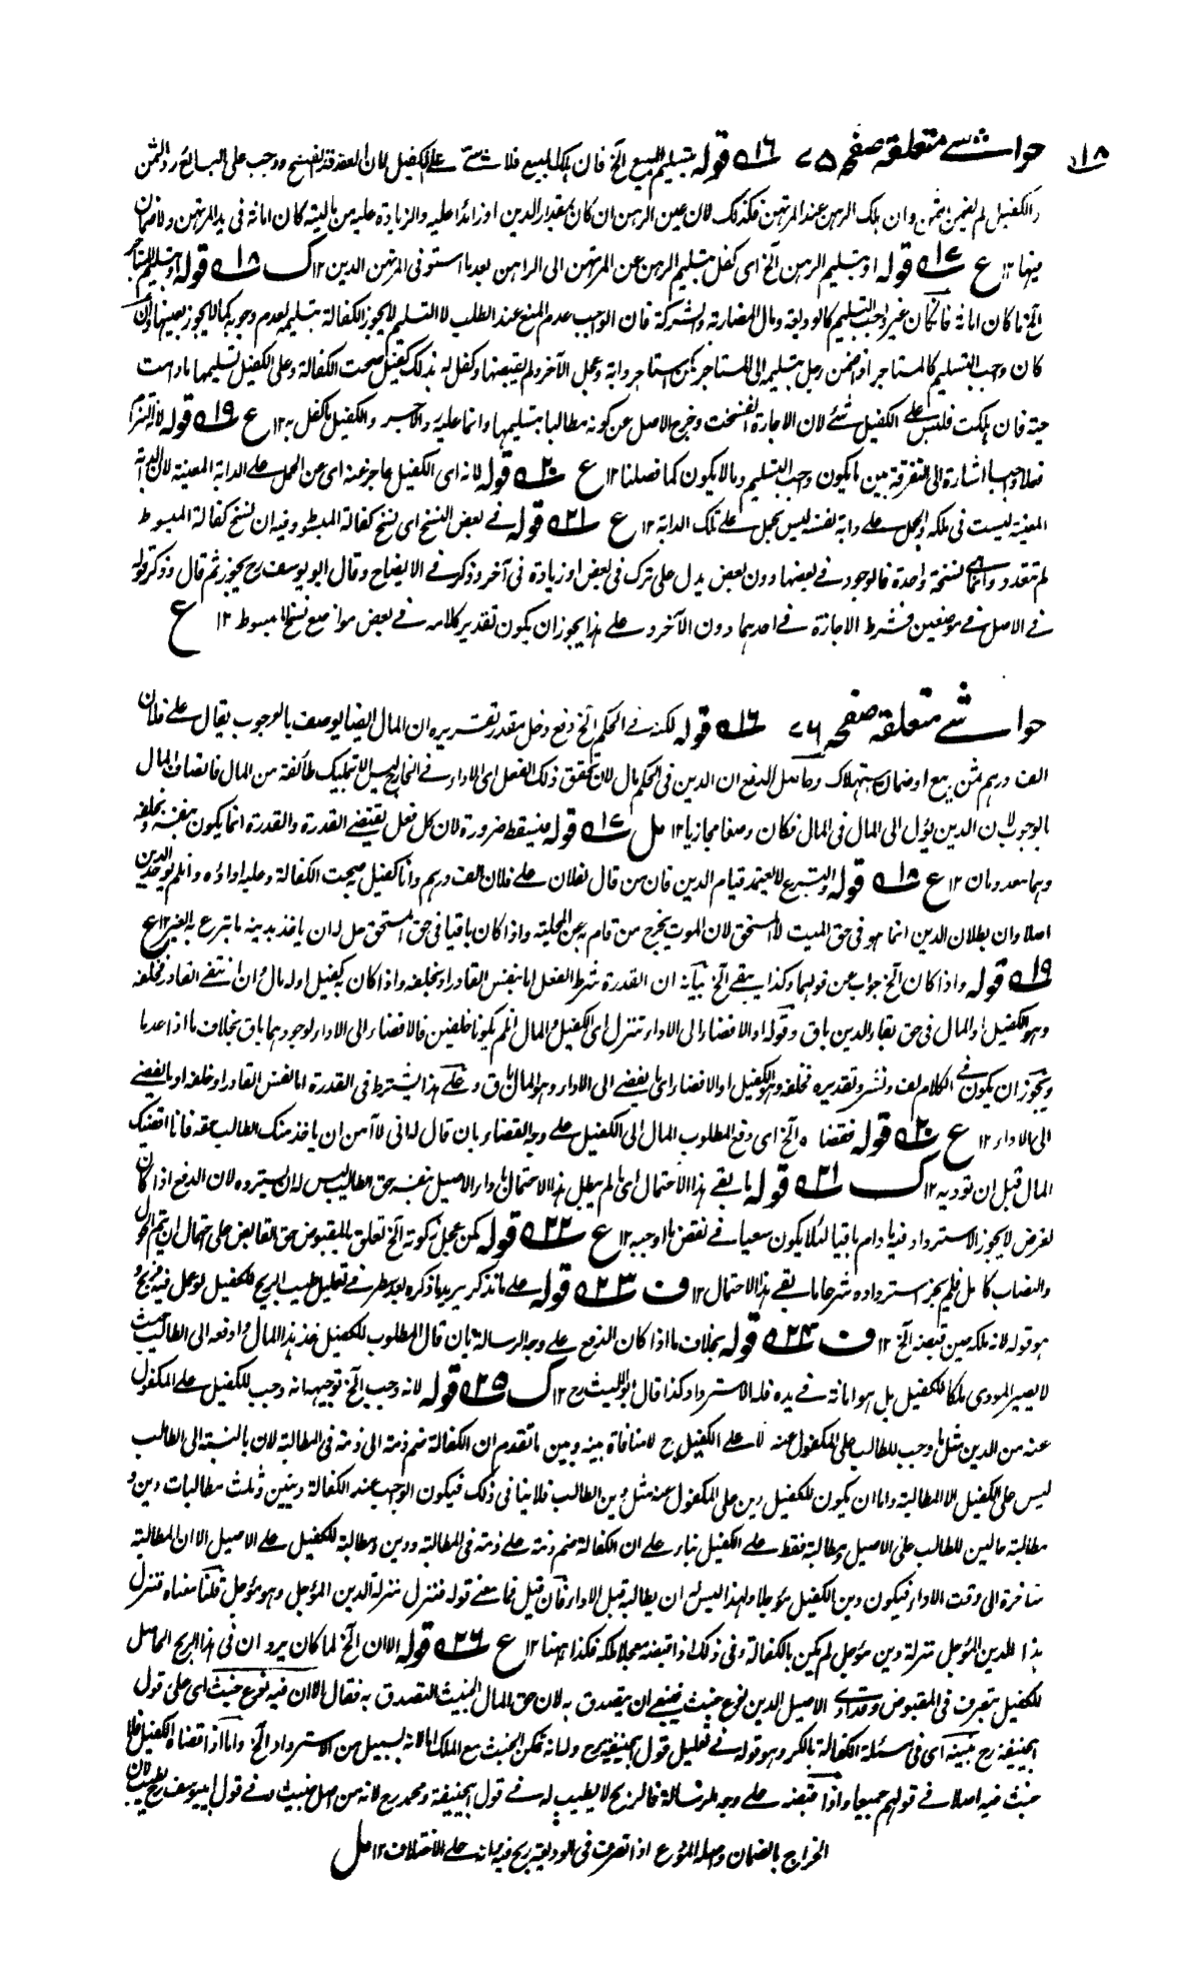 ١٨
حواشے متعلقہ صفحہ ٧٥ ١٦ قوله بتسليم المبيع الخ فان هلك المبيع فلا شئ علے الكفيل لان العقد قد انفسخ ووجب على البائع رد الثمن
والكفيل لم يضمن الثمن وان هلك الرهن عند المرتهن فكذلك لان عين الرهن ان كان بمقدار الدين او زائدا عليه والزيادة عليه من ماليته كان امانة فى يد المرتهن ولا ضمان
فيها ١٢ ع ١٧ قوله او بتسليم الرهن الخ اى كفل بتسليم الرهن عن المرتهن الى الراهن بعد ما استوفى المرتهن الدين ١٢ ك ١٨ قوله او بتسليم المستاجر
الخ ما كان امانة فان كان غير واجب التسليم كالوديعة ومال المضاربة والشركة فان الواجب عدم المنع عند الطلب لا التسليم لا يجوز الكفالة بتسليمه لعدم وجوبه كما لا يجوز بعينها وان
كان واجب التسليم كالمستاجر اذا ضمن رجل بتسليمه الى المستاجر كمن استاجر دابة وعجل الاجر ولم يقبضها وكفل له بذلك كفيل صحت الكفالة وعلى الكفيل تسليمها ما دامت
حية فان هلكت فليس علے الكفيل شئ لان الاجارة انفسخت وخرج الاصل عن كونه مطالبا بتسليمها وانما عليه رد الاجر والكفيل ما كفل به ١٢ ع ١٩ قوله لانه التزم
فعلا واجبا اشارة الى التفرقة بين ما يكون واجب التسليم وما لا يكون كما فصلنا ١٢ ع ٢٠ قوله لانه اى الكفيل عاجز عنه اى عن الحمل علے الدابة المعينة لان الدابة
المعينة ليست فى ملكه والحمل علے دابة نفسه ليس بحمل علے تلك الدابة ١٢ ع ٢١ قوله فے بعض النسخ اى نسخ كفالة المبسوط وفيه ان نسخ كفالة المبسوط
لم تتعدد وانما هى نسخة واحدة فالوجود فے بعضها دون بعض يدل على ترك فى بعض او زيادة فى آخر وذكر فے الايضاح وقال ابو يوسف رح يجوز ثم قال وذكر قوله
فے الاصل فے موضعين فشرط الاجازة فے احدهما دون الآخر وعلے هذا يجوز ان يكون تقدير كلامه فے بعض مواضع نسخ المبسوط ١٢ ع
حواشے متعلقہ صفحہ ٧٦ ١٦ قوله لكنه فے الحكم الخ دفع دخل مقدر تقريره ان المال ايضا يوصف بالوجوب يقال علے فلان
الف درهم ثمن بيع او ضمان استهلاك وحاصل الدفع ان الدين فى الحكم مال لان تحقق ذلك الفعل اى الاداء فے الخارج ليس الا بتمليك طائفة من المال فاتصاف المال
بالوجوب لان الدين يؤل الى المال فى المال فكان وصفا مجازيا ١٢ مل ١٧ قوله فيسقط ضرورة لان كل فعل يقتضے القدرة والقدرة انما يكون بنفسه وبخلفه
وهما معدومان ١٢ ع ١٨ قوله والتبرع لا يعتمد قيام الدين فان من قال لفلان علے فلان الف درهم وانا كفيل صحت الكفالة وعليه اداؤه وان لم يوجد الدين
اصلا وان بطلان الدين انما هو فى حق الميت لا المستحق لان الموت يخرج من قام به عن المحلية واذا كان باقيا فى حق المستحق حل له ان ياخذ بدينه ما تبرع به الغير ١٢ ع
١٩ قوله واذا كان الخ جواب عن قولهما وكذا يبقے الخ بيانه ان القدرة شرط الفعل اما بنفس القادر او بخلفه واذا كان به كفيل او له مال فان انتفے القادر فخلفه
وهو الكفيل او المال فى حق بقاء الدين باق وقوله او الافضاء الى الاداء تنزل اى الكفيل والمال ان لم يكونا خلفين فالافضاء الى الاداء لوجودهما باق بخلاف ما اذا عدما
ويجوز ان يكون فے الكلام لف ونشر وتقديره فخلفه وهو الكفيل او الافضاء اى ما يفضے الى الاداء وهو المال باق وعلے هذا يشترط فى القدرة اما نفس القادر او خلفه او ما يفضے
الى الاداء ١٢ ع ٢٠ قوله فقضاه الخ اى دفع المطلوب المال الى الكفيل علے وجه القضاء بان قال له انى لا آمن ان ياخذ منك الطالب حقه فانا اقضيك
المال قبل ان تؤديه ١٢ ك ٢١ قوله ما بقے هذا الاحتمال اى ما لم يبطل هذا الاحتمال باداء الاصيل بنفسه حق الطالب ليس له ان يسترده لان الدفع اذا كان
لغرض لا يجوز الاسترداد فيه ما دام باقيا لئلا يكون سعيا فے نقض ما اوجبه ١٢ ع ٢٢ قوله كمن عجل زكوته الخ تعلق بالمقبوض حق القابض على احتمال ان يتم الحول
والنصاب كامل فلم يجز استرداده شرعا ما بقے هذا الاحتمال ١٢ ف ٢٣ قوله علے ما نذكر يريد ما ذكره بعد سطر فے تعليل طيب الربح للكفيل لو عمل فيه فربح و
هو قوله لانه ملكه حين قبضه الخ ١٢ ف ٢٤ قوله بخلاف ما اذا كان الدفع علے وجه الرسالة بان قال المطلوب للكفيل خذ هذا المال وادفعه الى الطالب حيث
لا يصير المودى ملكا للكفيل بل هو امانة فے يده فله الاسترداد كذا قال ابو الليث رح ١٢ ك ٢٥ قوله لانه وجب الخ توجيهه انه وجب للكفيل علے المكفول
عنه من الدين مثل ما وجب للطالب على المكفول عنه لا علے الكفيل ح لا منافاة بينه وبين ما تقدم ان الكفالة ضم ذمة الى ذمة فى المطالبة لان بالنسبة الى الطالب
ليس على الكفيل الا المطالبة واما ان يكون للكفيل دين على المكفول عنه مثل دين الطالب فلا ينافى ذلك فيكون الواجب عند الكفالة دينين وثلث مطالبات دين و
مطالبة حالين للطالب على الاصيل ومطالبة فقط علے الكفيل بناء علے ان الكفالة ضم ذمة علے ذمة فى المطالبة ودين ومطالبة للكفيل علے الاصيل الا ان المطالبة
متاخرة الى وقت الاداء فيكون دين الكفيل مؤجلا ولهذا ليس له ان يطالبه قبل الاداء فان قيل فما معنے قوله فنزل منزلة الدين المؤجل وهو مؤجل قلنا معناه تنزل
هذا الدين المؤجل منزلة دين مؤجل لم يكن بالكفالة وفى ذلك اذا قبضه معجلا ملكه فكذا ههنا ١٢ ع ٢٦ قوله الا ان الخ لما كان يرد ان فى هذا الربح الحاصل
للكفيل بتصرف فى المقبوض وقد ادى الاصيل الدين نوع خبث فينبغے ان يتصدق به لان حق المال الخبيث التصدق به فقال الا ان فيه نوع خبث اى على قول
ابيحنيفة رح نبينه اى فى مسئلة الكفالة بالكر وهو قوله فے تعليل قول ابيحنيفة رح وله انه تمكن الخبث مع الملك اما لانه بسبيل من الاسترداد الخ واما اذا قضاه الكفيل فلا
خبث فيه اصلا فے قولهم جميعا واذا قبضه علے وجه الرسالة فالربح لا يطيب له فے قول ابيحنيفة ومحمد رح لانه من اصل خبيث وفے قول ابيوسف رح يطيب لان
الخراج بالضمان واصله المودع اذا تصرف فى الوديعة وربح فيه فانه علے الاختلاف ١٢ مل